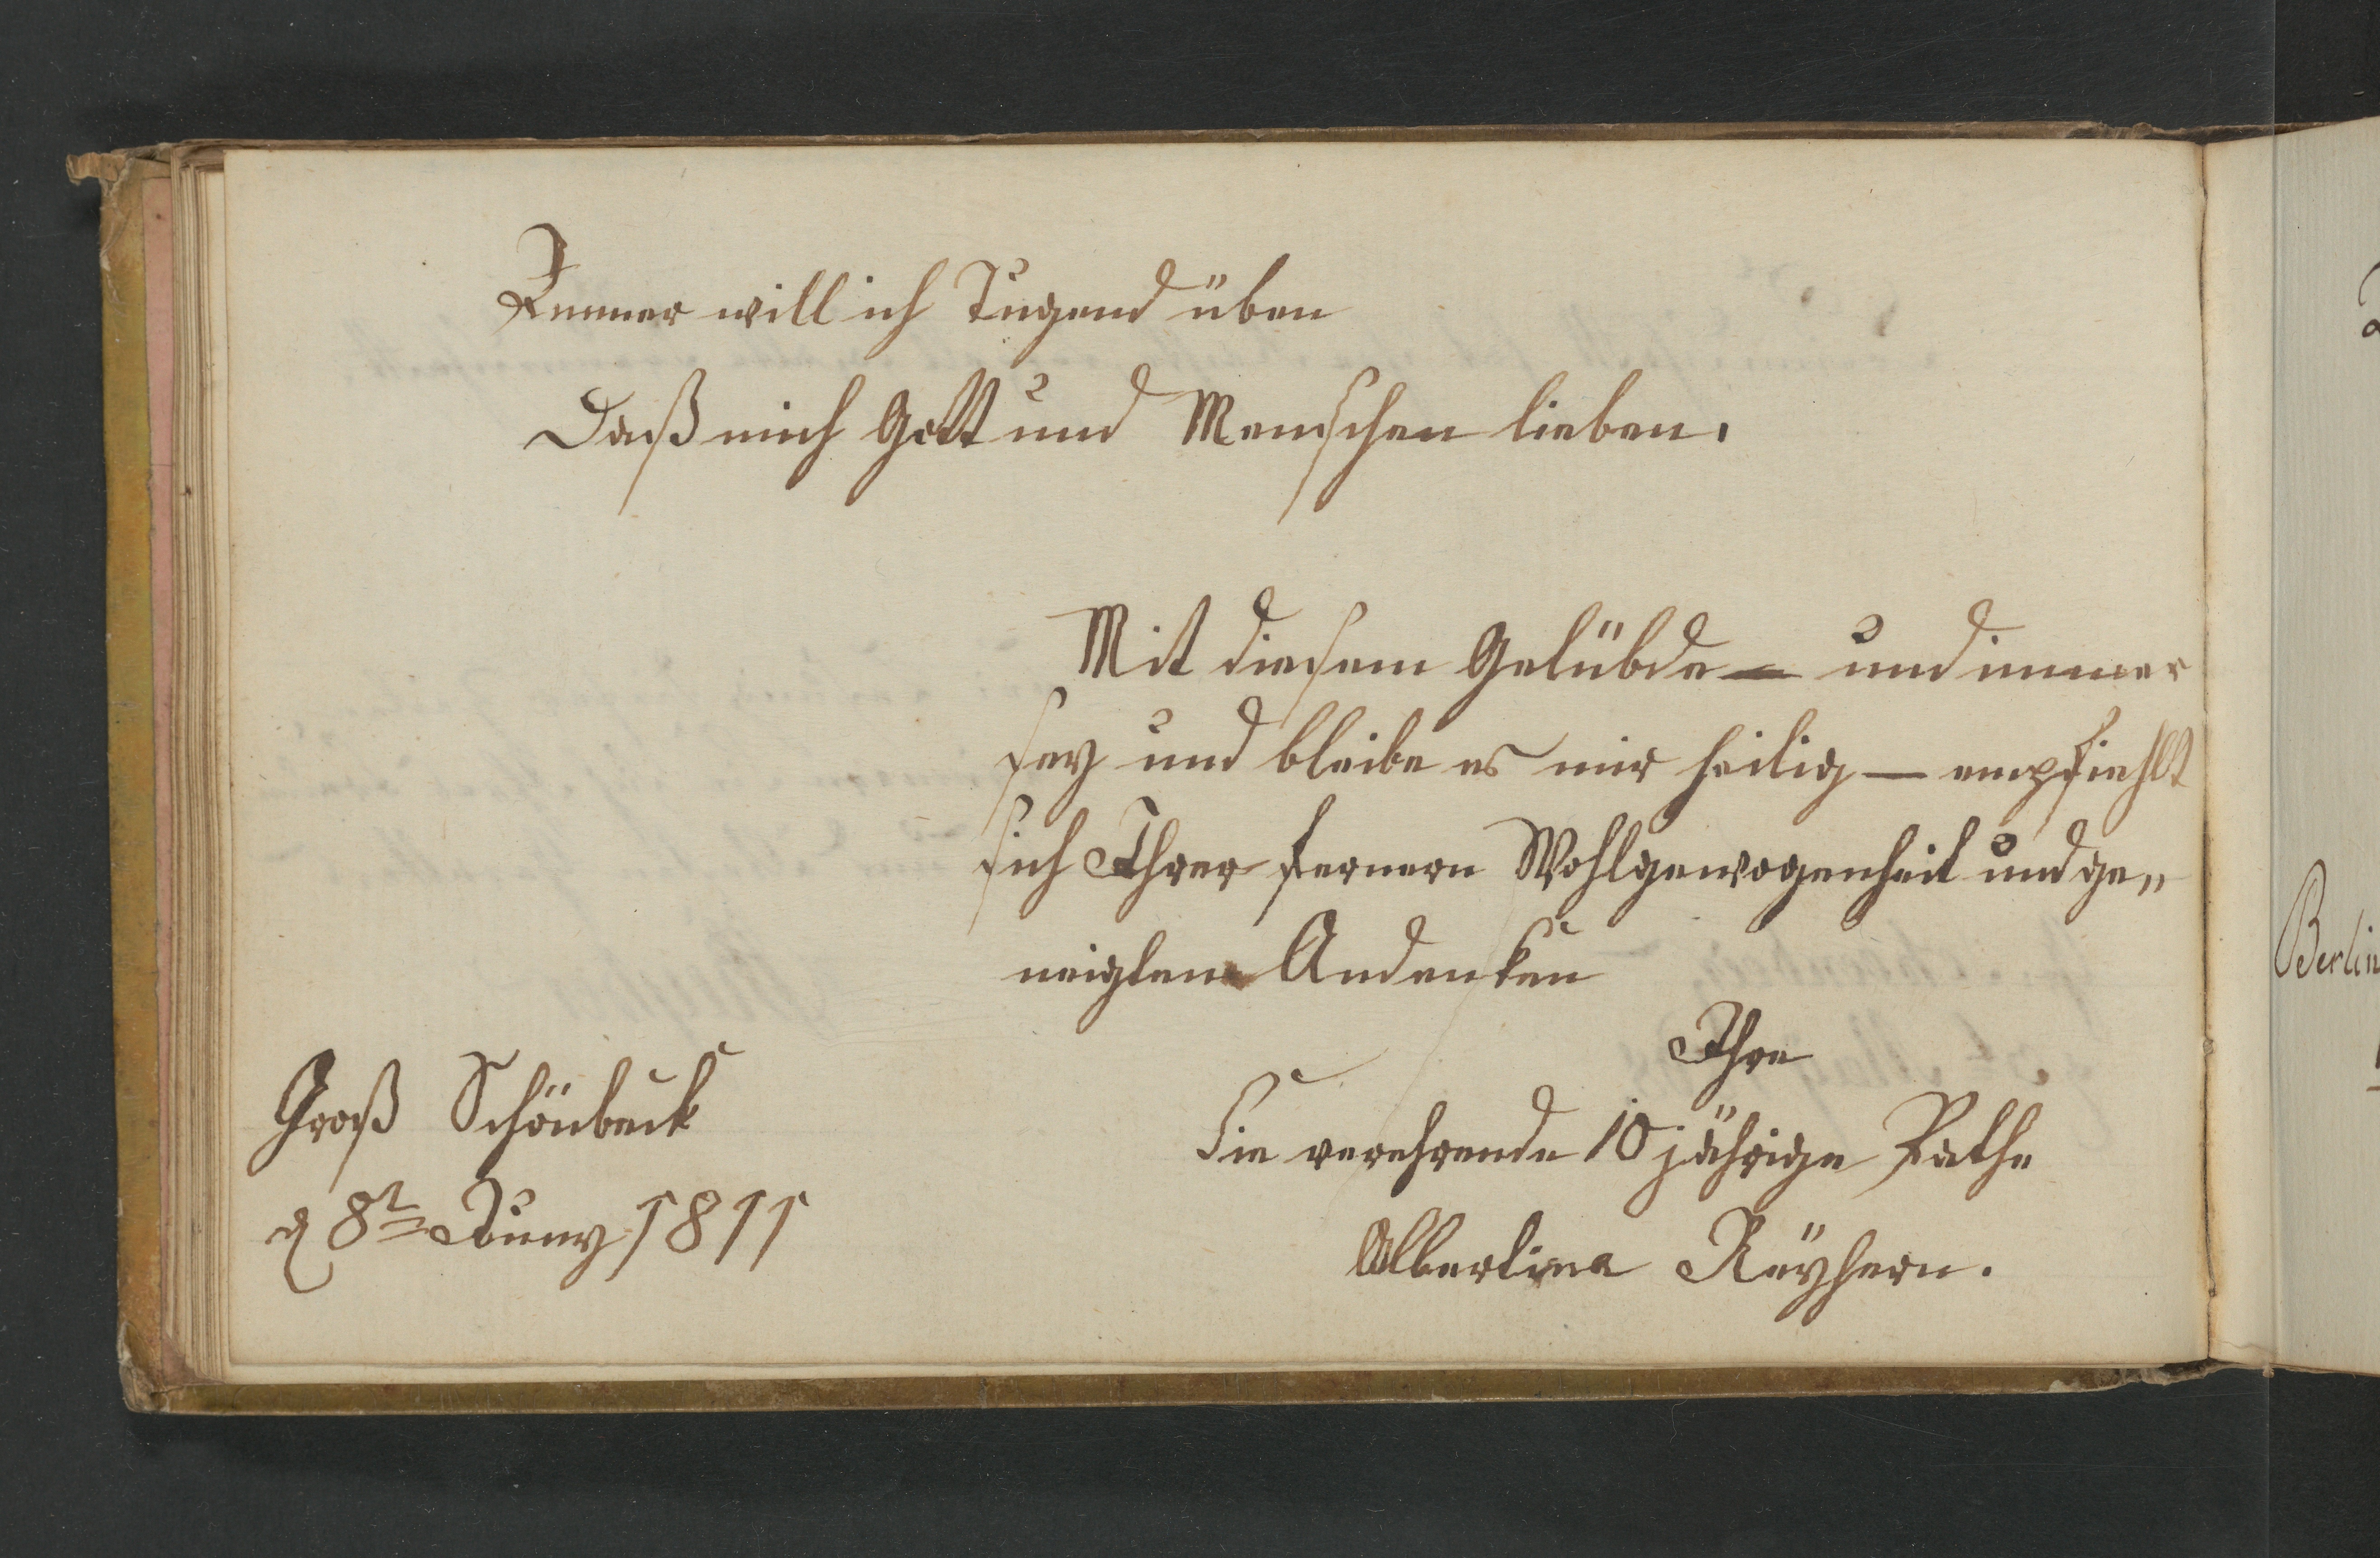 Immer will ich Tugend üben
Daß mich Gott und Menschen lieben.
Mit diesem Gelübde — und immer
sey und bleibe es mir heilig — empfiehlt
sich Ihrer fernern Wohlgewogenheit und ge„
neigtem Andenken
Ihre
Sie verehrende 10 jährige Pathe
Albertina Reyhern.
Groß Schönbeck
d 8t Juny 1811
Berlin